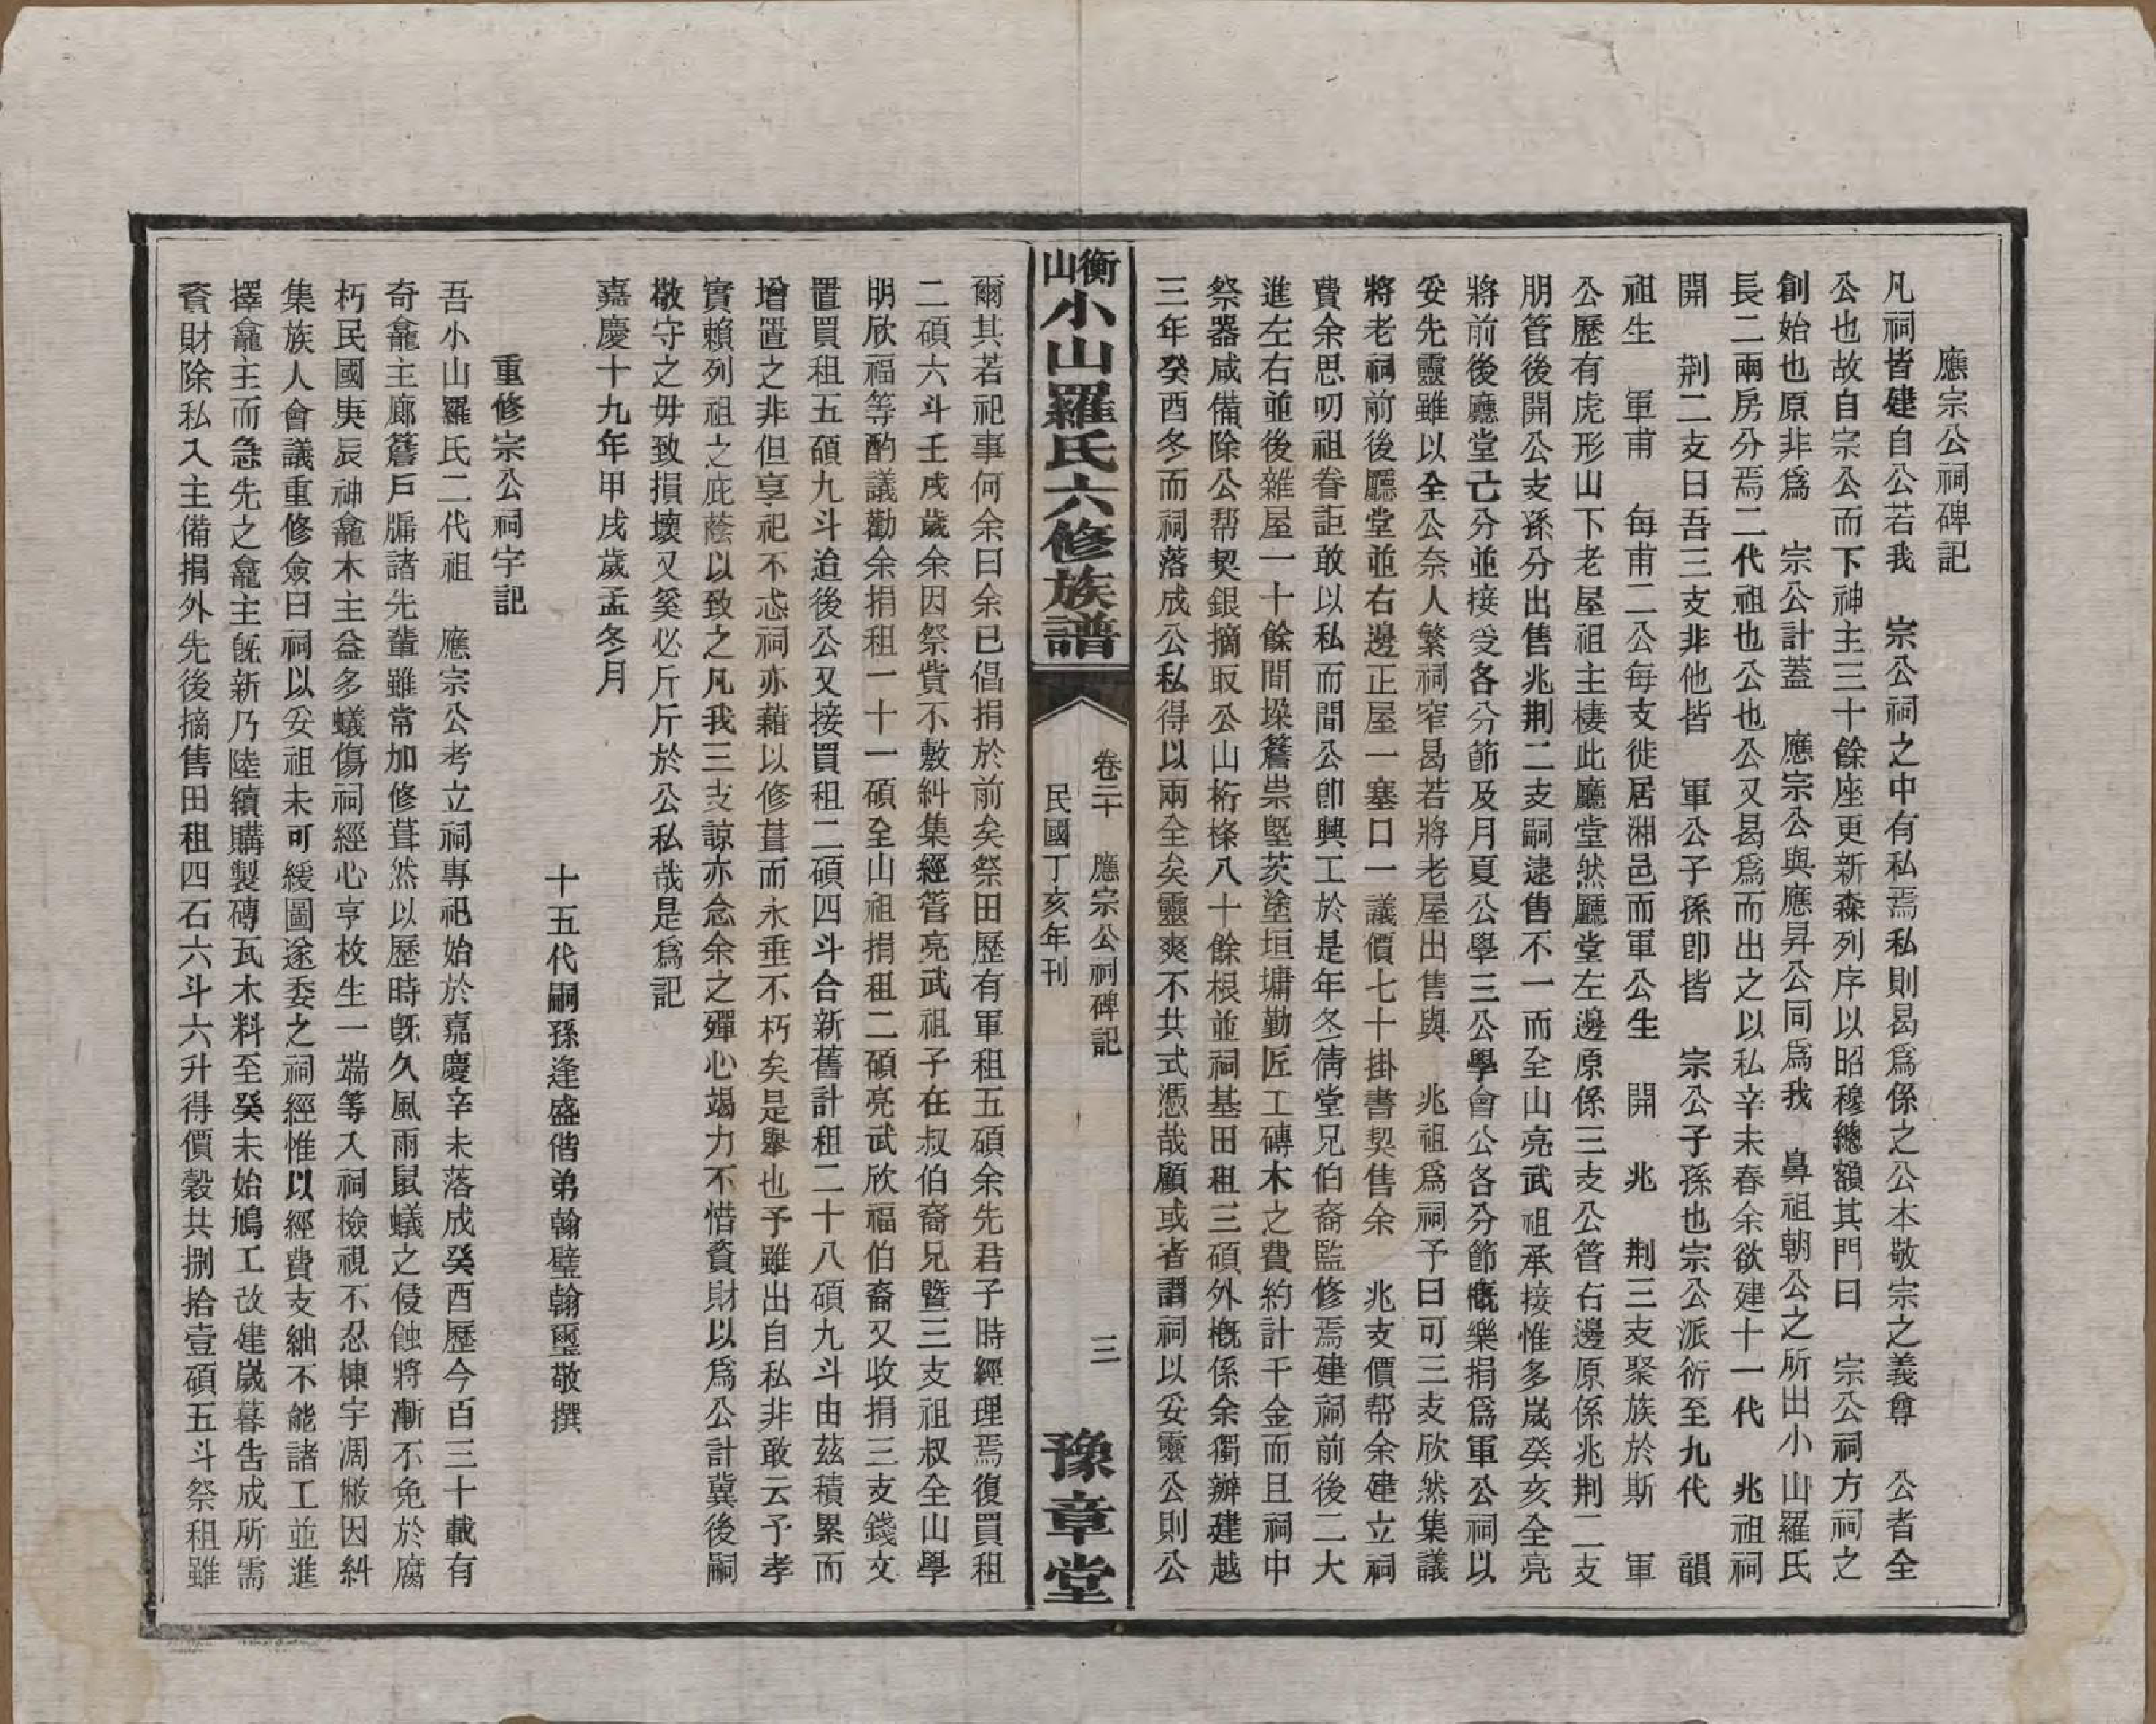 應宗公祠碑記
凡祠皆建自公若我　宗公祠之中有私焉私則曷爲係之公本敬宗之義尊　公者全
公也故自宗公而下神主三十餘座更新森列序以昭穆總額其門曰　宗公祠方祠之
創始也原非爲　宗公計蓋　應宗公與應昇公同爲我　鼻祖朝公之所出小山羅氏
長二兩房分焉二代祖也公也公又曷爲而出之以私辛未春余欲建十一代　兆祖祠
開　荆二支曰吾三支非他皆　軍公子孫卽皆　宗公子孫也宗公派衍至九代　韻
祖生　軍甫　每甫二公每支徙居湘邑而軍公生　開　兆　荆三支聚族於斯　軍
公歷有虎形山下老屋祖主棲此廳堂然廳堂左邊原係三支公管右邊原係兆荆二支
朋管後開公支孫分出售兆荆二支嗣逮售不一而全山亮武祖承接惟多嵗癸亥全亮
將前後廳堂己分並接受各分節及月夏公學三公學會公各分節槪樂捐爲軍公祠以
妥先靈雖以全公奈人繁祠窄曷若將老屋出售與　兆祖爲祠予曰可三支欣然集議
將老祠前後廳堂並右邊正屋一塞口一議價七十掛書契售余　兆支價帮余建立祠
費余思叨祖眷詎敢以私而間公卽興工於是年冬倩堂兄伯裔監修焉建祠前後二大
進左右並後雜屋一十餘間垜簷祟墍茨塗垣墉勤匠工磚木之費約計千金而且祠中
祭器咸備除公帮契銀摘取公山桁條八十餘根並祠基田租三碩外槪係余獨辦建越
三年癸酉冬而祠落成公私得以兩全矣靈爽不共式憑哉顧或者謂祠以妥靈公則公
衡山小山羅氏六修族譜
卷二十　應宗公祠碑記　三
民國丁亥年刊
豫章堂
爾其若祀事何余曰余已倡捐於前矣祭田歷有軍租五碩余先君子時經理焉復買租
二碩六斗壬戌歲余因祭貲不敷糾集經管亮武祖子在叔伯裔兄暨三支祖叔全山學
明欣福等酌議勸余捐租一十一碩全山祖捐租二碩亮武欣福伯裔又收捐三支錢文
置買租五碩九斗迨後公又接買租二碩四斗合新舊計租二十八碩九斗由茲積累而
增置之非但享祀不忒祠亦藉以修葺而永垂不朽矣是舉也予雖出自私非敢云予孝
實賴列祖之庇蔭以致之凡我三支諒亦念余之殫心竭力不惜資財以爲公計冀後嗣
敬守之毋致損壞又奚必斤斤於公私哉是爲記
嘉慶十九年甲戌歲孟冬月
十五代嗣孫逢盛偕弟翰璧翰璽敬撰
重修宗公祠宇記
吾小山羅氏二代祖　應宗公考立祠專祀始於嘉慶辛未落成癸酉歷今百三十載有
奇龕主廊簷戶牖諸先輩雖常加修葺然以歷時旣久風雨鼠蟻之侵蝕將漸不免於腐
朽民國庚辰神龕木主益多蟻傷祠經心亨枚生一端等入祠檢視不忍棟宇凋敝因糾
集族人會議重修僉曰祠以妥祖未可緩圖遂委之祠經惟以經費支絀不能諸工並進
擇龕主而急先之龕主旣新乃陸續購製磚瓦木料至癸未始鳩工改建嵗暮告成所需
資財除私入主備捐外先後摘售田租四石六斗六升得價穀共捌拾壹碩五斗祭租雖